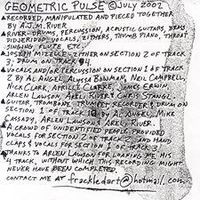 GEOMETRIC PULSE © JULY 2002
RECORDED, MANIPULATED AND PIECED TOGETHER
BY A.J.M. RIVER
RIVER: DRUMS, PERCUSSION, ACOUSTIC GUITARS,
DIDJERIDOO, VOCALS, ZITHERS, THUMB PIANO, TABLAS,
SINGING, FLUTE ETC.
JOSEPH MIZELLE: ZITHER ON SECTION 2 OF TRACK
3; DRUM ON TRACK 4.
VOCALS AND/OR PERCUSSION ON SECTION 1 OF TRACK
2 BY AL ANGEL, NEIL CAMPBELL,
NICK CLARK, ARTICLE CLARKE, JAMES ERVIN,
ARLEN LAWSON, CARI STANGL
GUITAR, TROMBONE, RECORDER & DRUM ON
SECTION 1 OF TRACK BY AL ANGEL, MIKE
CASSADY, ARLEN LAWSON & ARLY RIVER.
A CROWD OF UNIDENTIFIED DEMENTS PROVIDED
VOCALS FOR SECTION 2 OF TRACK 2 AND HAND
CLAPS & VOCALS FOR SECTION 1 OF TRACK
THANKS TO ARLEN LAWSON FOR LOANING ME HIS
4 TRACK, WITHOUT WHICH THIS RECORDING MIGHT
NEVER HAVE BEEN COMPLETED.
CONTACT ME AT freckledart@hotmail.com